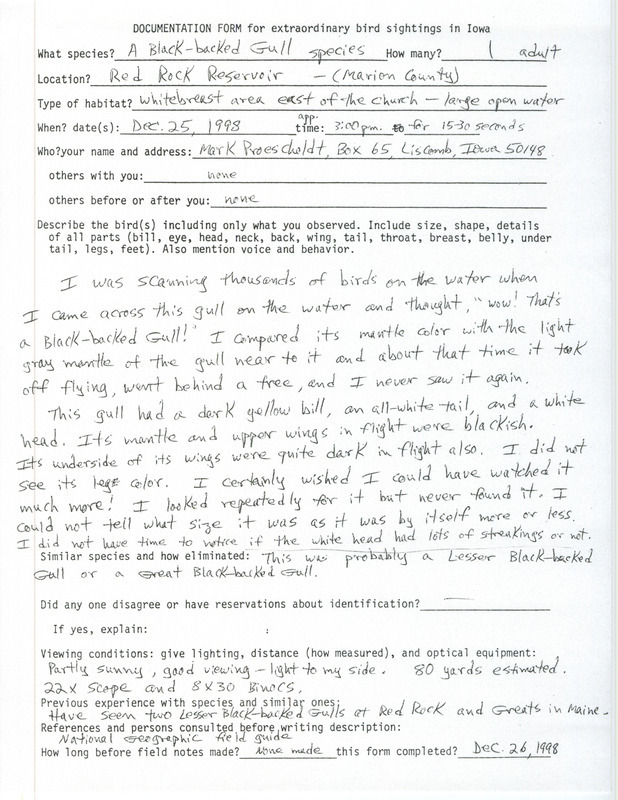 DOCUMENTATION FORM for extraordinary bird sightings in Iowa
What species? A Black-backed Gull species How many? 1 adult
Location? Red Rock Reservoir - (Marion County)
Type of habitat? whitebreast area east of the church - large open water
When? date(s): Dec. 25, 1998 app. time: 3:00 p.m. to for 15-30 seconds
Who? your name and address: Mark Proescholdt, Box 65, Liscomb, Iowa 50148
others with you: none
others before or after you: none
Describe the bird(s) including only what you observed. Include size, shape, details
of all parts (bill, eye, head, neck, back, wing, tail, throat, breast, belly, under
tail, legs, feet). Also mention voice and behavior.
I was scanning thousands of birds on the water when
I came across this gull on the water and thought, "wow! That's
a Black-backed Gull!" I compared its mantle color with the light
gray mantle of the gull near to it and about that time it took
off flying, went behind a tree, and I never saw it again.
This gull had a dark yellow bill, an all-white tail, and a white
head. Its mantle and upper wings in flight were blackish.
Its underside of its wings were quite dark in flight also. I did not
see its legs color. I certainly wished I could have watched it
much more! I looked repeatedly for it but never found it. I
could not tell what size it was as it was by itself more or less.
I did not have time to notice if the white head had lots of streakings or not.
Similar species and how eliminated: This was probably a Lesser Black-backed
Gull or a Great Black-backed Gull.
Did any one disagree or have reservations about identification? —
If yes, explain:
Viewing conditions: give lighting, distance (how measured), and optical equipment:
Partly sunny, good viewing - light to my side. 80 yards estimated.
22x scope and 8x30 Binocs.
Previous experience with species and similar ones:
Have seen two Lesser Black-backed Gulls at Red Rock and Greats in Maine.
References and persons consulted before writing description:
National Geographic field guide
How long before field notes made? none made this form completed? Dec. 26, 1998